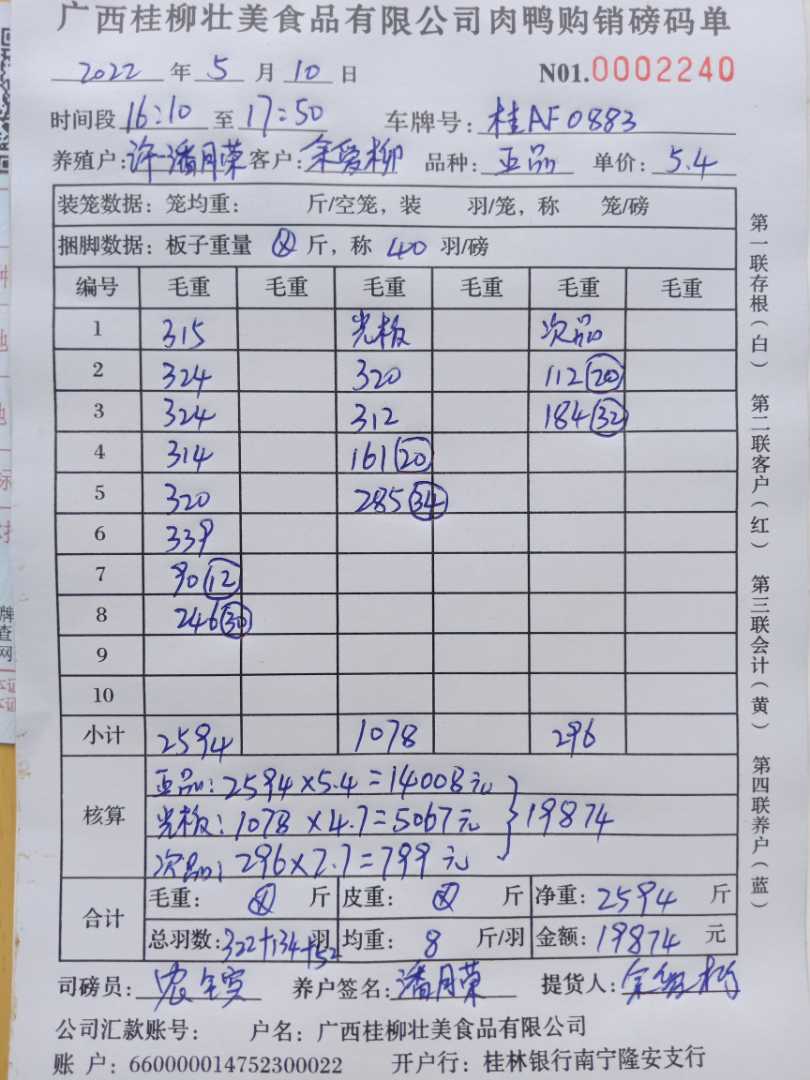 广西桂柳壮美食品有限公司肉鸭购销磅码单
2022 年 5 月 10 日 N01.0002240
时间段 16:10 至 17:50 车牌号: 桂AF0883
养殖户: 许一潘月荣 客户: 余爱柳 品种: 正品 单价: 5.4
装笼数据: 笼均重: 斤/空笼, 装 羽/笼, 称 笼/磅
捆脚数据: 板子重量 ⊗ 斤, 称 40 羽/磅
编号 毛重 毛重 毛重 毛重 毛重 毛重
1 315 光板 次品
2 324 320 112 20
3 324 312 184 32
4 314 161 20
5 320 285 34
6 339
7 90 12
8 246 30
9
10
小计 2594 1078 296
核算
正品: 2594×5.4=14008元
光板: 1078×4.7=5067元 } 19874
次品: 296×2.7=799元
合计
毛重: ⊗ 斤 皮重: ⊗ 斤 净重: 2594 斤
总羽数: 322+134+52 羽 均重: 8 斤/羽 金额: 19874 元
司磅员: 养户签名: 潘月荣 提货人: 余爱柳
公司汇款账号: 户名: 广西桂柳壮美食品有限公司
账 户: 660000014752300022 开户行: 桂林银行南宁隆安支行
第一联存根(白) 第二联客户(红) 第三联会计(黄) 第四联养户(蓝)